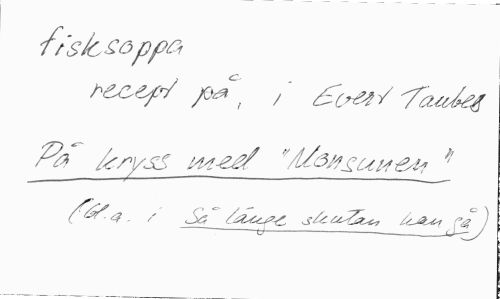 fisksoppa
recept på, i Evert Taubes
På kryss med "Monsunen"
(bl.a. i Så länge skutan kan gå)